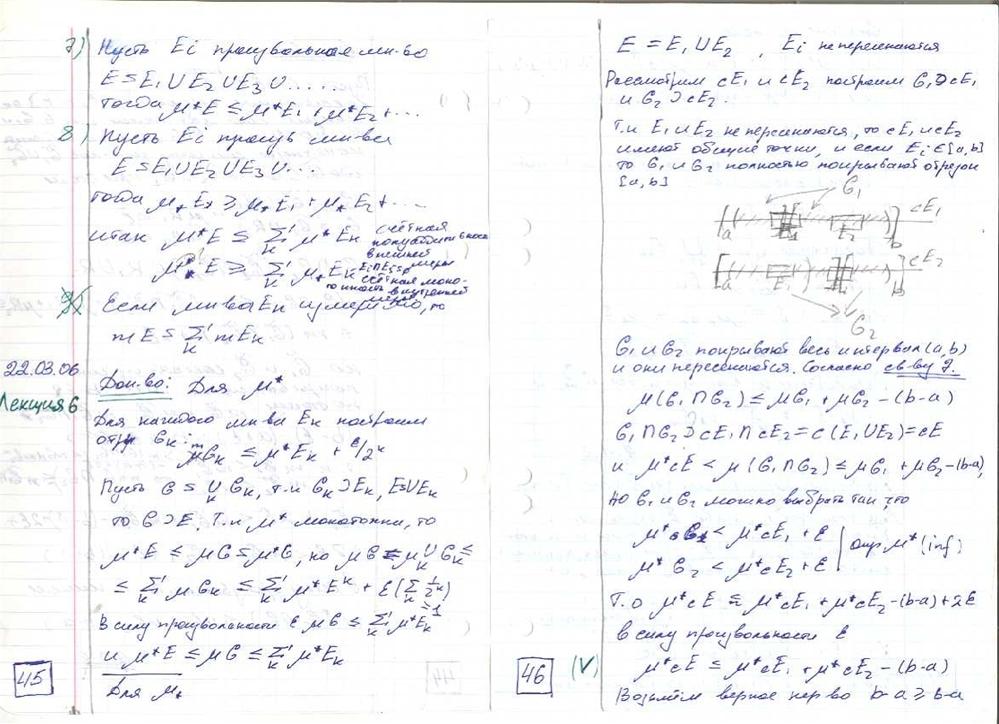 7) Пусть Ei произвольная мн-во
E ⊆ E₁ ∪ E₂ ∪ E₃ ∪ . . . . .
Тогда μ*E ≤ μ*E₁ + μ*E₂ + ...
8) Пусть Ei произв мн-ва
E = E₁ ∪ E₂ ∪ E₃ ∪ ....
тогда μ⁎E ≥ μ⁎E₁ + μ⁎E₂ + ...
итак μ*E ≤ Σₖ μ*Eₖ счётная полуаддитивность внешней меры
μ⁎E ≥ Σₖ μ⁎Eₖ Ei ∩ Ej = ∅ счётная монотонность внутренней меры
9) Если мн-ва Eₖ измеримо, то
mE = Σₖ mEₖ
22.03.06
Лекция 6
Док-во: Для μ*
Для каждого мн-ва Eₖ построим
откр Gₖ: μGₖ ≤ μ*Eₖ + ε/2ᵏ
Пусть G = ∪ₖ Gₖ, т.к Gₖ ⊃ Eₖ, E = ∪Eₖ
то G ⊃ E, Т.к μ* монотонны, то
μ*E ≤ μG = μ*G, но μG = μ ∪ₖ Gₖ ≤
≤ Σₖ μGₖ ≤ Σₖ μ*Eᵏ + ε(Σₖ 1/2ᵏ)
=1
В силу произвольности ε μG ≤ Σₖ μ*Eₖ
и μ*E ≤ μG ≤ Σₖ μ*Eₖ
Для μ⁎
45
E = E₁ ∪ E₂ , Ei не пересекаются
Рассмотрим cE₁ и cE₂ построим G₁ ⊃ cE₁
и G₂ ⊃ cE₂.
Т.к E₁ и E₂ не персикаются, то cE₁ и cE₂
имеют общие точки, и если Ei ∈ [a, b]
то G₁ и G₂ полностью покрывают отрезок
[a, b]
G₁
a E₁ E₂ b cE₁
a E₁ b cE₂
G₂
G₁ и G₂ покрывают весь интервал (a, b)
и они пересекаются. Согласно св-ву 7.
μ(G₁ ∩ G₂) ≤ μG₁ + μG₂ − (b-a)
G₁ ∩ G₂ ⊃ cE₁ ∩ cE₂ = c(E₁ ∪ E₂) = cE
и μ*cE < μ(G₁ ∩ G₂) ≤ μG₁ + μG₂ - (b-a),
Но G₁ и G₂ можно выбрать так, что
μ* G₁ < μ*cE₁ + ε
μ* G₂ < μ*cE₂ + ε опр. μ* (inf)
Т.о μ*cE ≤ μ*cE₁ + μ*cE₂ - (b-a) + 2ε
в силу произвольности ε
(V) μ*cE ≤ μ*cE₁ + μ*cE₂ − (b-a)
Возьмём верное нер-во b-a ≥ b-a
46